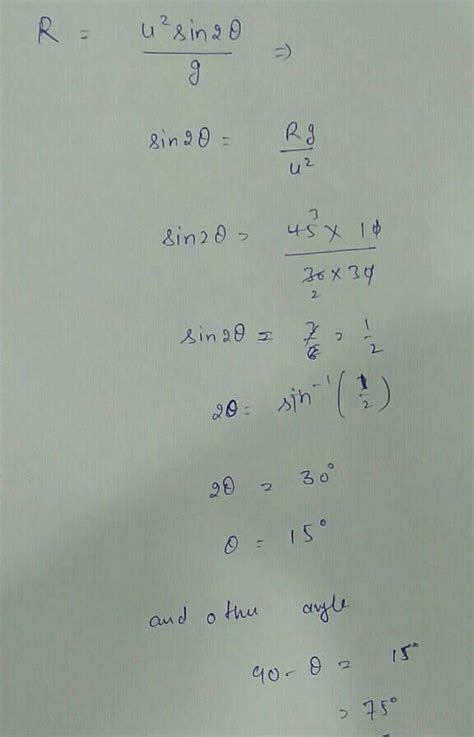 R = u² sin2θ / g ⇒
sin2θ = Rg / u²
sin2θ = 45 3 × 10 / 30 2 × 30
sin2θ = 3/6 = 1/2
2θ = sin⁻¹(1/2)
2θ = 30°
θ = 15°
and other angle
90 - θ = 15°
= 75°